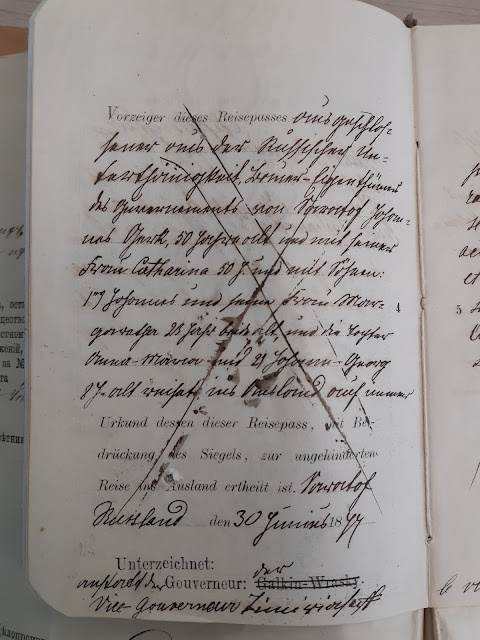 Vorzeiger dieses Reisepasses ausgeschlos-
sener aus der Russischen Un-
terthänigkeit, Bauer-Eigenthümer
des Gouvernements von Saratof Johan-
nes Gerk, 50 Jahre alt und mit seiner
Frau Catharina 50 J. und mit Söhen:
1) Johannes und seine Frau Mar-
garetha 23 Jahr alt, und die Tochter
Anna-Maria und 2) Johann-Georg
8 J. alt reiset ins Ausland auf immer
Urkund dessen dieser Reisepass, mit Be-
drückung des Siegels, zur ungehinderten
Reise ins Ausland ertheilt ist. Saratof
Russland den 30 Junius 1877
Unterzeichnet:
der
anstatt des Gouverneur: Galkin-Wrasky.
Vice Gouverneur
4
5
за №